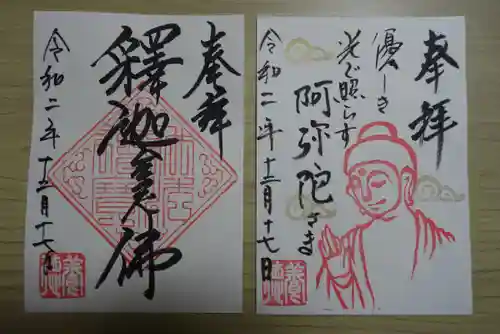 奉拝
釋迦牟尼佛
令和二年十二月十七日
奉拝
優しき
光で照らす
阿弥陀さま
令和二年十二月十七日
養徳